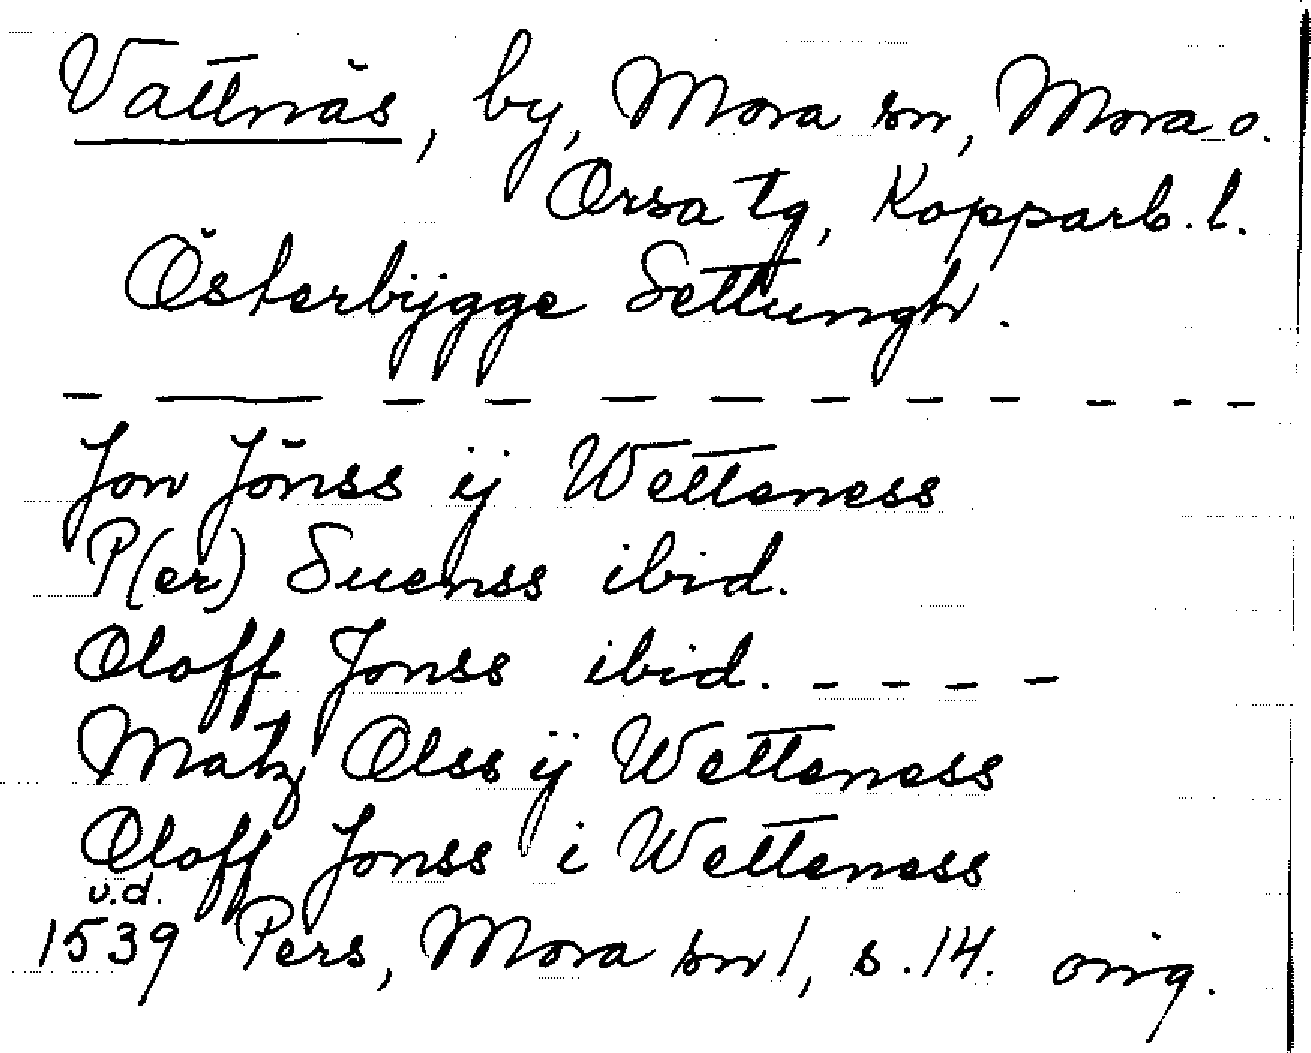 Vattnäs, by, Mora sn, Mora o.
Orsa tg, Kopparb. l.
Österbijgge Settungh.
— — — — — — — — — — — —
Jon Jönss ij Wetteness
P(er) Suenss ibid.
Oloff Jonss ibid. - - - -
Matz Olss ij Wetteness
Oloff Jonss i Wetteness
u.d.
1539 Pers, Mora sn 1, s. 14. orig.